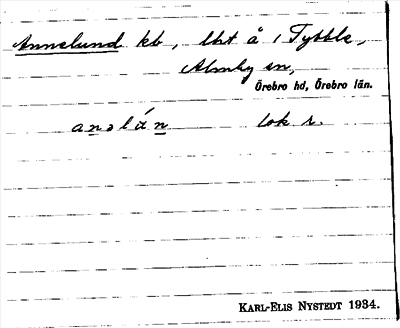 Annelund kb, lht å 1 Tybble,
Almby sn,
Örebro hd, Örebro län.
anəlán lok r.
KARL-ELIS NYSTEDT 1934.